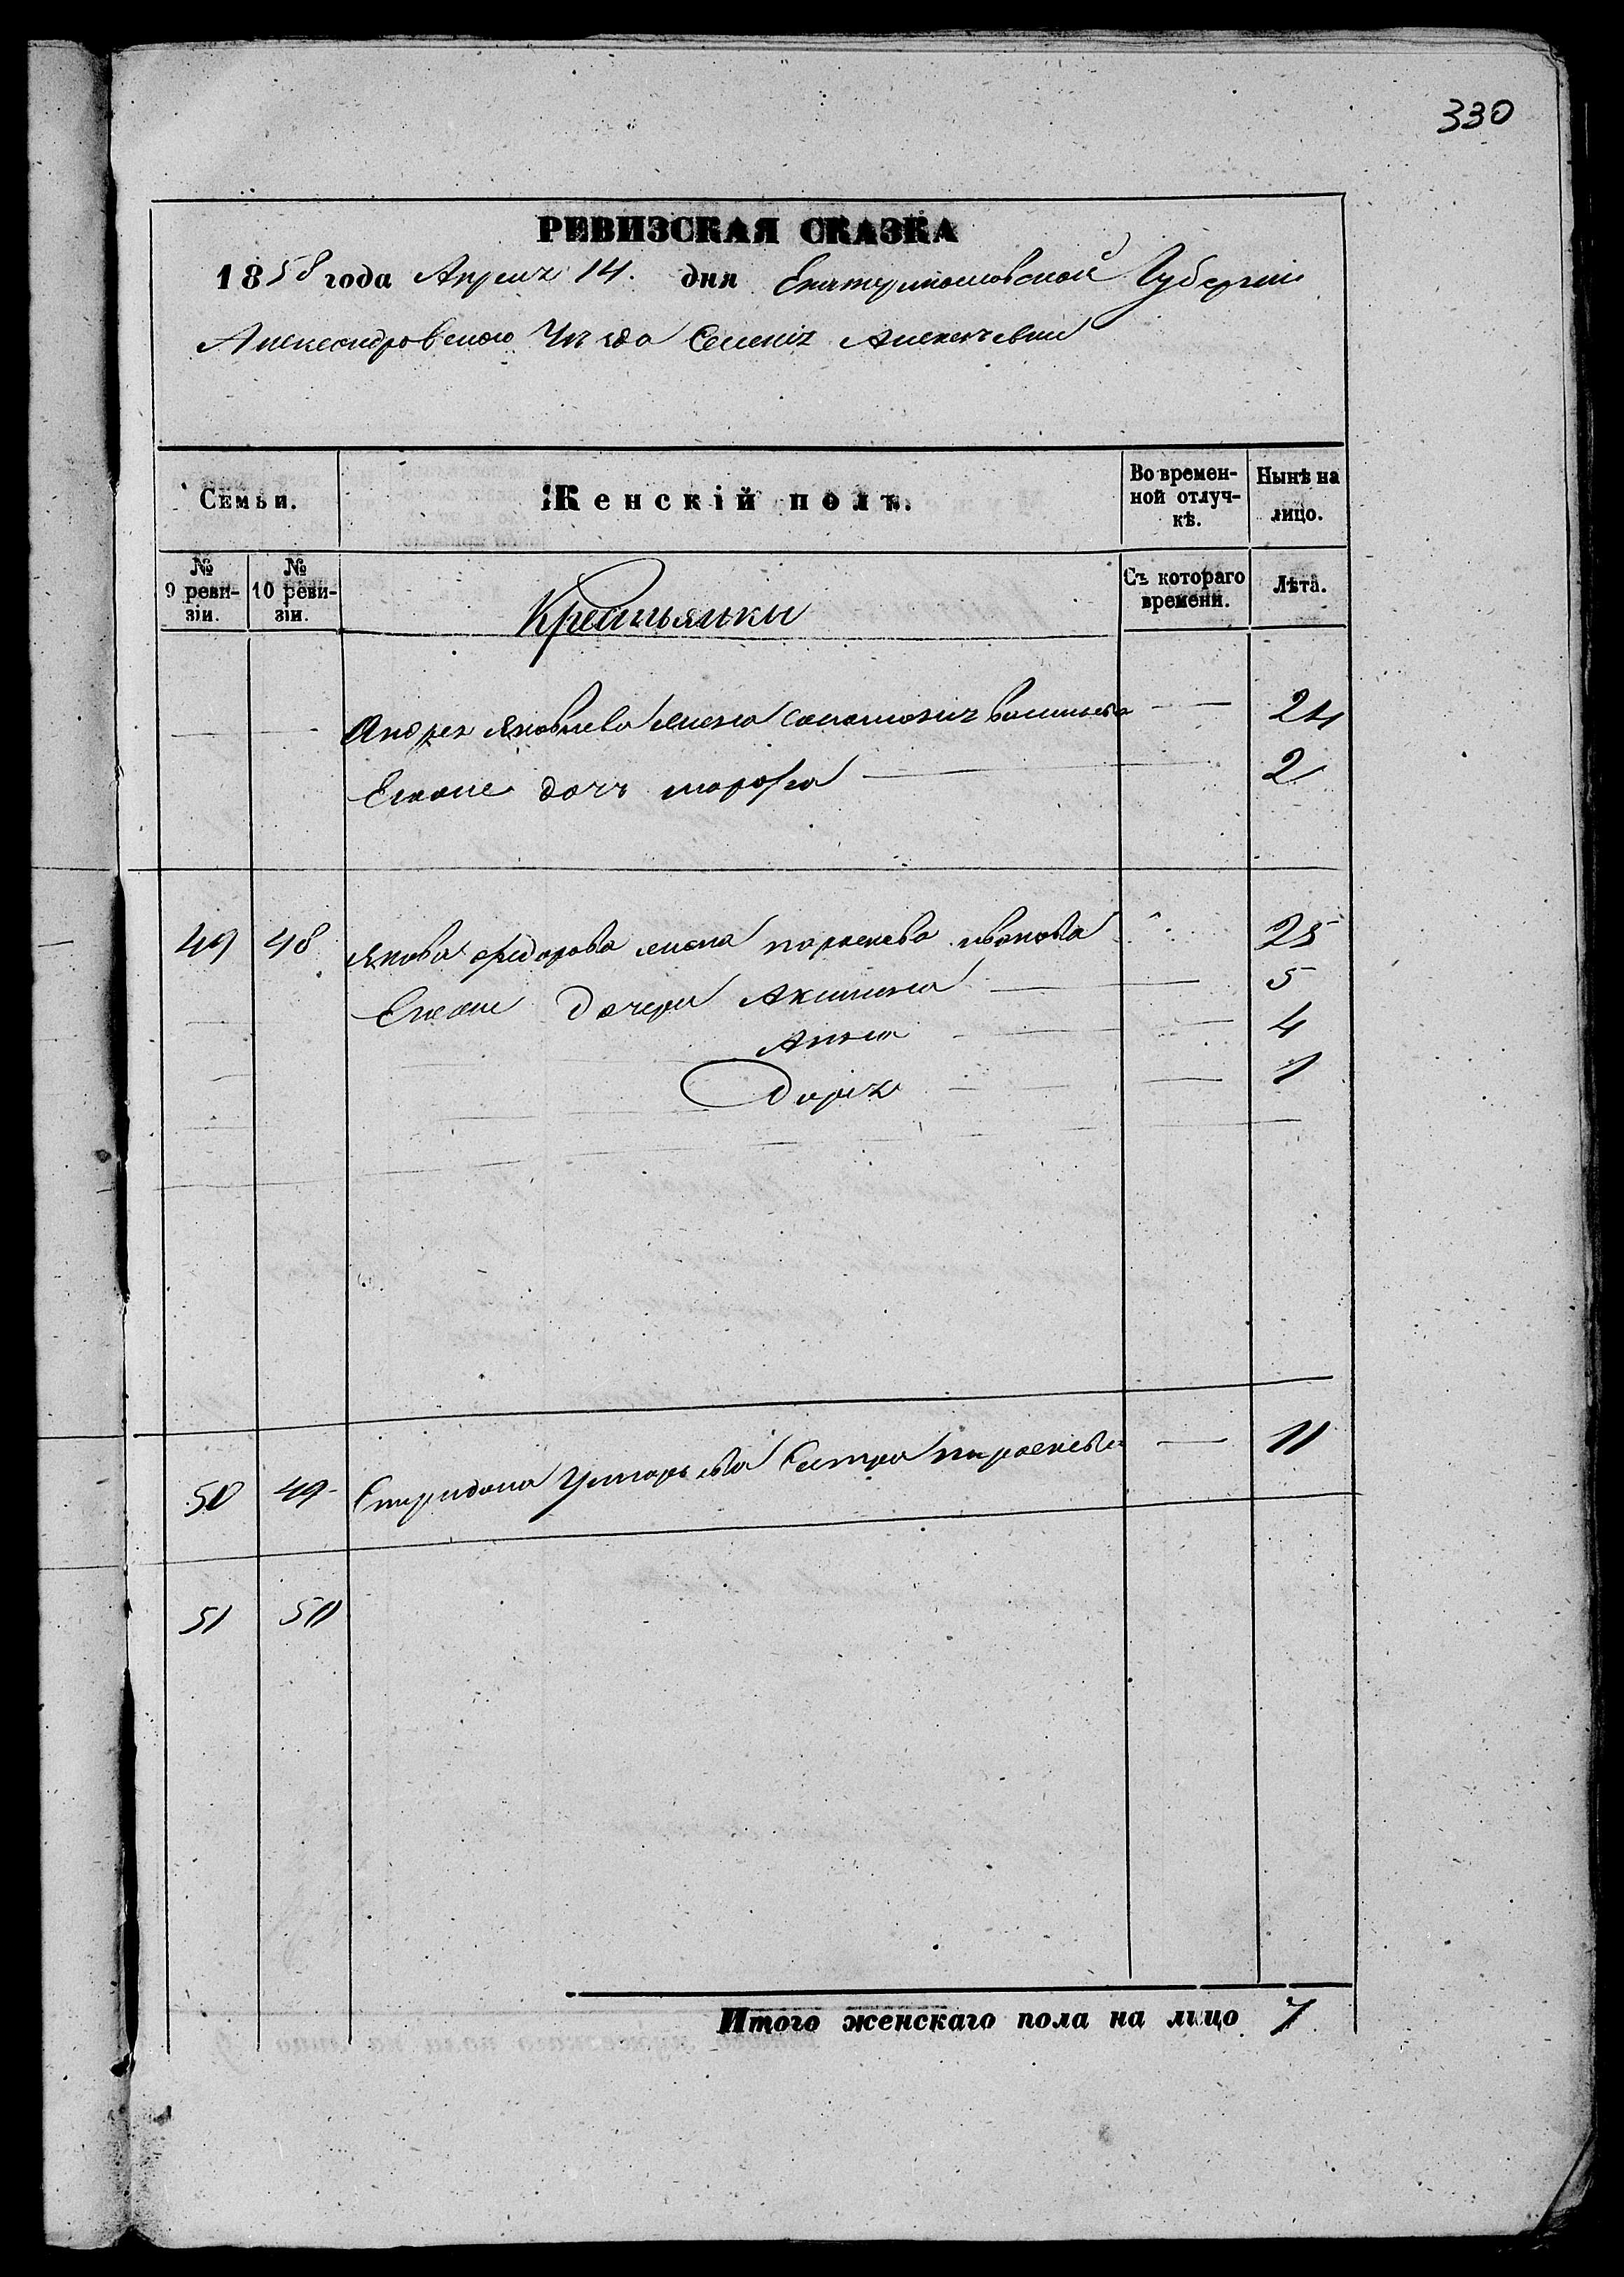 330
РЕВИЗСКАЯ СКАЗКА
1858 года Апреля 14. дня Екатеринославской Губернии
Александровского Уезда Селения Алексеевки
Семьи.
Женскій полъ.
Во времен-
ной отлуч-
кѣ.
Нынѣ на
лицо.
№
9 реви-
зіи.
№
10 реви-
зіи.
Крестьянки
Съ котораго
времени.
Лѣта.
Андрея Яковлева жена Соломония васильева — 24
Егоже дочь марфа — 2
49 48 Якова федорова жена параскева иванова 25
Егоже дочери Акилина — 5
Анна — 4
Дарья — 1
50 49 Спиридона Григорьева Сестра параскева — 11
51 50
Итого женскаго пола на лицо 7